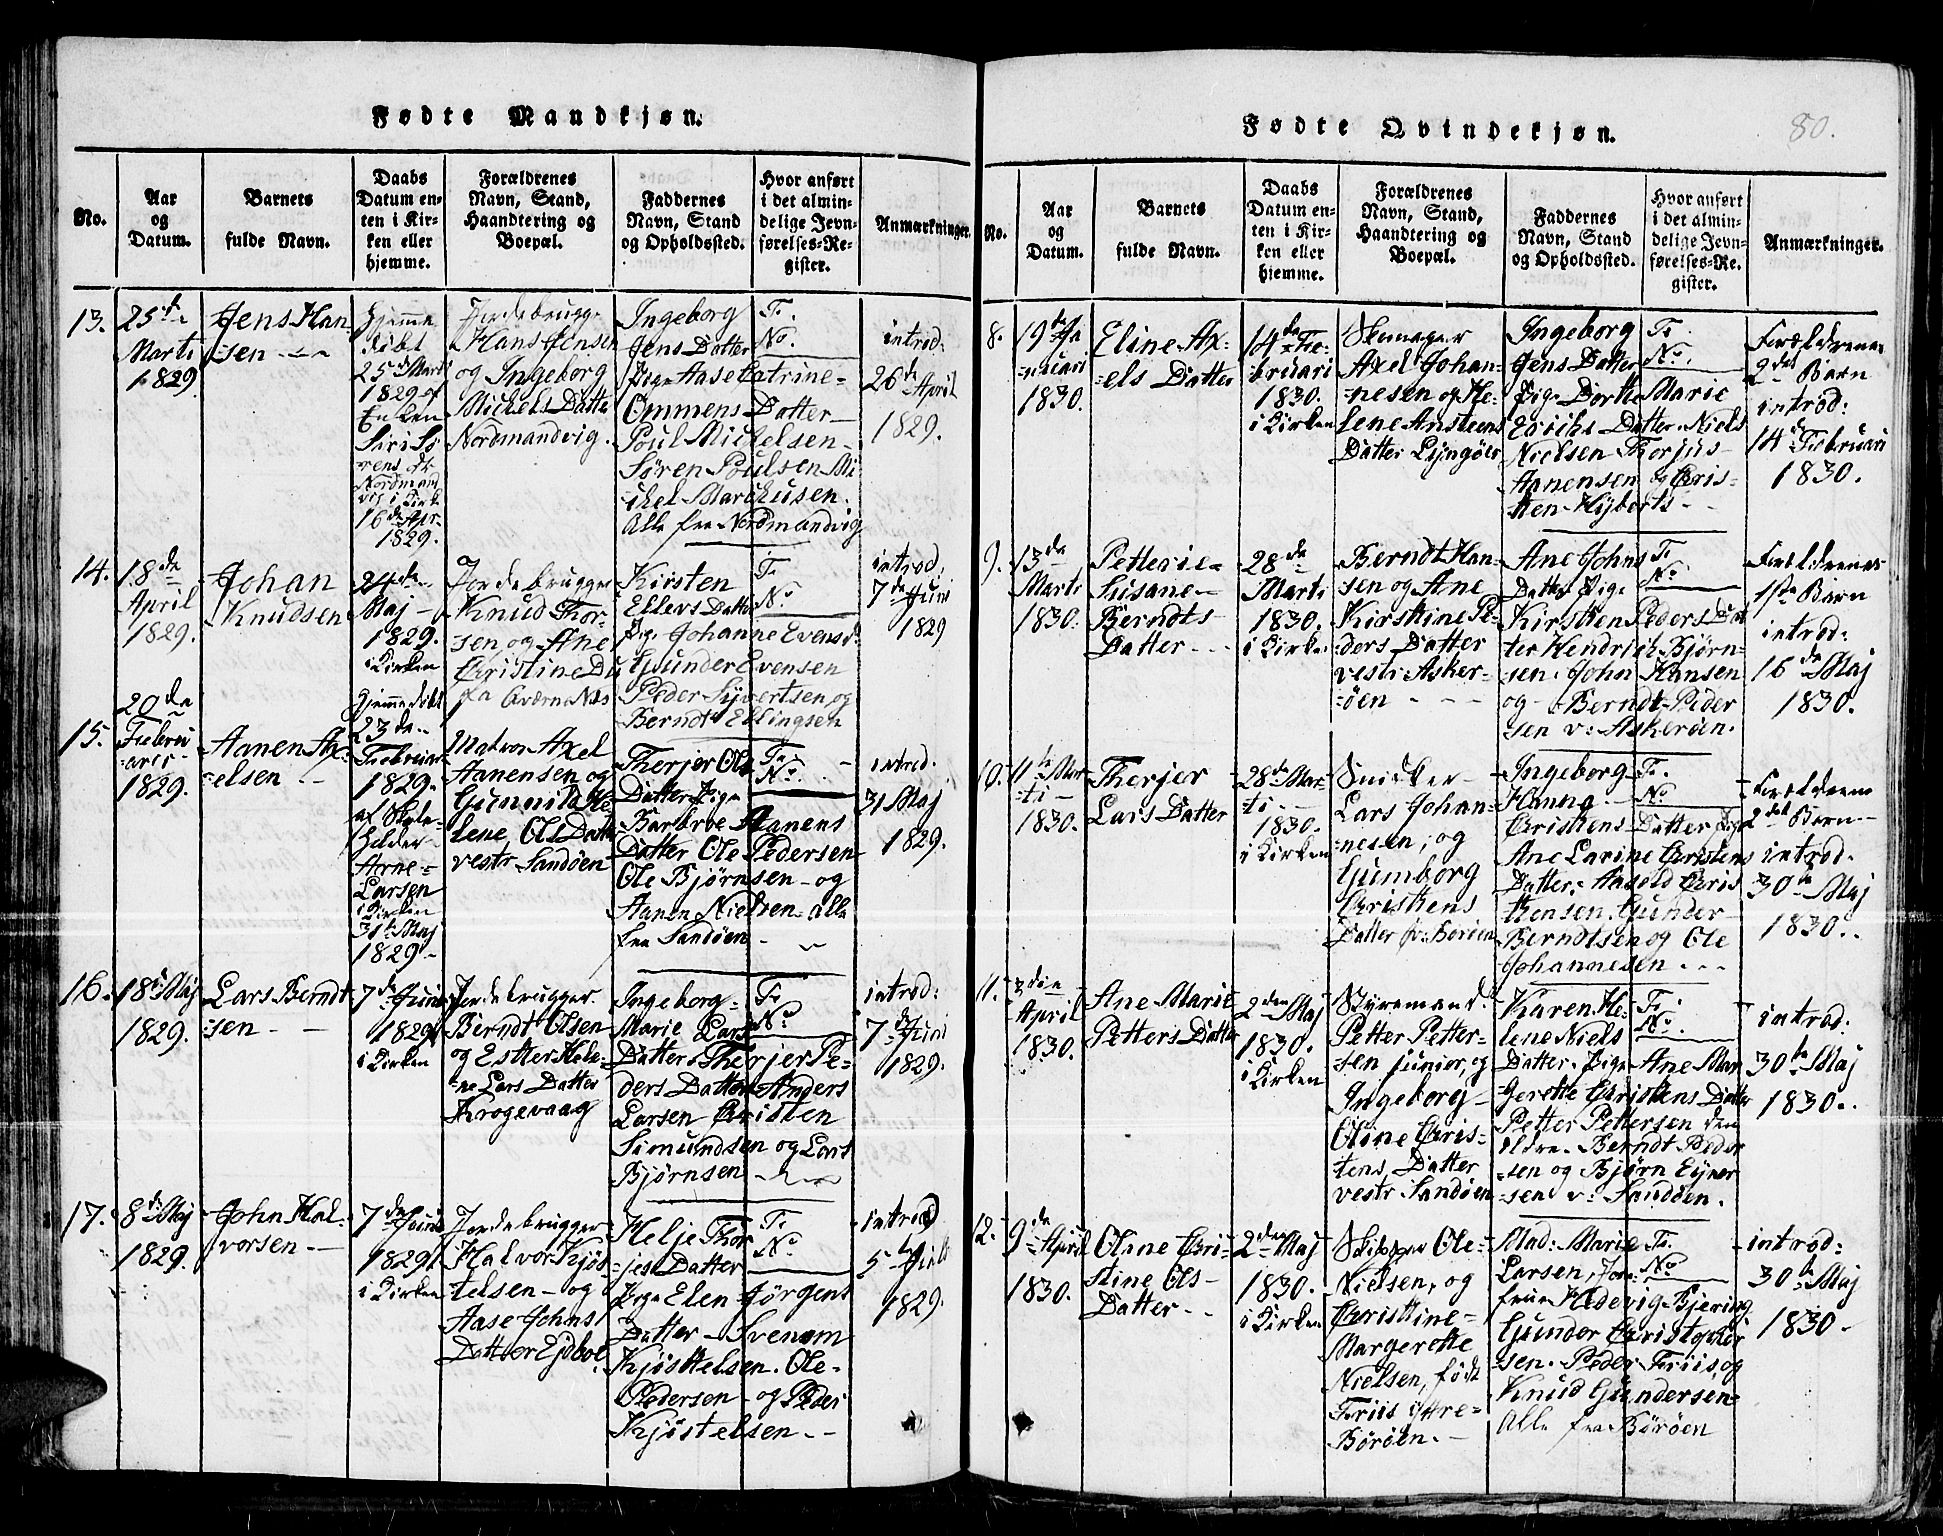 Fødte Mandkjøn.
No.
Aar
og
Datum.
Barnets
fulde Navn.
Daabs
Datum en-
ten i Kir-
ken eller
hjemme.
Forældrenes
Navn, Stand,
Haandtering og
Boepæl.
Faddernes
Navn, Stand
og Opholdssted.
Hvor anført
i det almin-
delige Jevn-
førelses-Re-
gister.
Anmærkninger.
13.
25de
Marti
1829
Jens Han
=sen
Hjemme
døbt
25d Marti
1829 af
Enken
Siri Sö
rens dr
Nordmand
vig i Kirk
16de Apr
1829.
Jordebrugge
Hans Jensen
og Ingeborg
Mickels Datte
Nordmandvig.
Ingeborg
Jens Datter
Pige Aase Catrine=
Ommens Datter
Poul Mickelsen
Sören Poulsen Mi
ckel Marchusen.
Alle fra Nordmandvig
F.
No.
introd:
26de April
1829.
14.
18de
April
1829.
Johan
Knudsen
24de
Maj
1829.
i Kirken
Jordebrugger
Knud Thor-
sen og Ane
Christine Du
fa Qværnenæs
Kirsten
Ellevs Datter
Pige Johanne Evens d.
Gunder Evensen
Peder Syvertsen og
Berndt Ellingsen
F.
No.
introd.
7de Juni
1829
15.
20de
Februa
=arii
1829.
Aanen Ax=
=elsen
Hjemmedøbt
23de
Februar
1829.
af Skole-
holder
Arne
Larsen
i Kirken
31te Maj
1829
Matros Axel
Aanensen og
Gunnild He
lene Ols Datter
vestr Sandøen
Therjer Ols
Datter Pige
Barbroe Aanens
Datter Ole Pedersen
Ole Bjørnsen og
Aanen Nielsen alle
fra Sandøen
F.
No.
introd.
31 Maj
1829.
16.
18de Maj
1829.
Lars Berndt
=sen
7de Juni
1829
i Kirken
Jordebrugger
Berndt Olsen
og Esther Hele-
=ne Lars Datter
Krogevaag
Ingeborg
Marie Lars
Datter Therjer Pe-
ders Datter Anders
Larsen Christen
Simundsen og Lars
Bjørnsen
F.
No.
introd:
7de Juni
1829.
17.
8de Maj
1829.
John Hal-
vorsen
7de Juni
1829.
i Kirken
Jordebrugger
Halvor Kjøs
telsen og
Aase Johns
Datter Ejdboe
Helje Thor
jes Datter
Pige Elen Jørgens
Datter Svenom
Kjøstelsen. Ole
Pedersen og Peder
Kjøstelsen
F.
No.
introd
5te Juli
1829.
Fødte Qvindekjøn.
80.
No.
Aar
og
Datum.
Barnets
fulde Navn.
Daabs
Datum en-
ten i Kir-
ken eller
hjemme.
Forældrenes
Navn, Stand,
Haandtering og
Boepæl.
Faddernes
Navn, Stand
og Opholdssted.
Hvor anført
i det almin-
delige Jevn-
førelses-Re-
gister.
Anmærkninger.
8.
19de Ja
nuari
1830.
Eline Ax=
=els Datter
14de Fe-
bruari
1830.
i Kirken
Skomager
Axel Johan-
nesen og He-
lene Ansteens
Datter Lyngöer
Ingeborg
Jens Datter
Pige Dorthe Marie
Erichs Datter Niels
Nielsen Thorjus
Aanensen og Chris-
ten Hyberts
F.
No.
Forældrenes
2det Barn
introd:
14d Februari
1830.
9.
13de
Marti
1830.
Petterie=
Susane
Berndts
Datter
28de
Marti
1830.
i Kirken
Berndt Han-
sen og Ane
Kirstine Pe-
ders Datter
vestr Asker-
=öen
Ane Johns
Datter Pige
Kirsten Peders Dat
ter Hendrich Bjørn-
sen. John Hansen
og Berndt Peder
sen v: Askeröen.
F.
No.
Forældrenes
1ste Barn
introd:
16de Maj
1830.
10.
11te Mar
=ti
1830.
Therjer
Lars Datter
28de Mar-
ti
1830.
i Kirken
Snicker
Lars Johan-
nesen, og
Gumborg
Christens
Datter fr: Boröen
Ingeborg
Hanna
Christens Datter Pige
Ane Larine Christens
Datter. Aasold Chris
tensen. Gunder
Berndtsen og Ole
Johannesen
F.
No.
Forældrene
2det Barn
introd.
30te Maj
1830.
11.
3die
April
1830.
Ane Marie
Petters Datter
2den Maj
1830.
i Kirken
Styremand
Petter Petter-
sen junior, og
Ingeborg
Oline Chris-
tens Datter
vestr Sandøen
Karen He-
lene Niels
Datter Pige Ane Mar
gerethe Christens Datter
Petter Pettersen den
ældre. Berndt Peder
sen og Bjørn Ejner
sen v: Sandøen.
F.
No.
introd:
30te Maj
1830.
12.
9de April
1830.
Oline Chri-
stine Ols
Datter
2den Maj
1830.
i Kirken
Skipper Ole
Nielsen, og
Christine=
Margerethe
Nielsen, født
Friis ytre=
Börøen.
Mad: Marie
Larsen, Jom-
frue Hedevig Bjering
Gunder Christopher
sen. Peder Friis, og
Knud Gundersen
Alle fra Börøen
F.
No.
introd:
30te Maj
1830